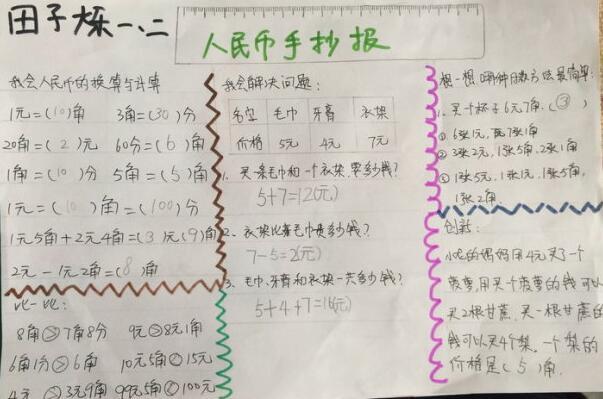 田子烁 一、二
人民币手抄报
我会人民币的换算与计算
1元=(10)角 3角=(30)分
20角=(2)元 60分=(6)角
1角=(10)分 5角=(5)角
1元=(10)角=(100)分
1元5角+2元4角=(3)元(9)角
2元-1元2角=(8)角
比一比:
8角>7角8分 9元>8元1角
6角1分>6角 10元5角<15元
4元 3元9角 99元5角<100元
我会解决问题:
名字 毛巾 牙膏 衣架
价格 5元 4元 7元
1. 买一条毛巾和一个衣架,要多少钱?
5+7=12(元)
2. 衣架比毛巾贵多少钱?
7-5=2(元)
3. 毛巾、牙膏和衣架一共多少钱?
5+4+7=16(元)
想一想哪种付款方法最简单:
1. 买一个杯子6元7角.(③)
① 6张1元,7张1角
② 3张2元,1张5角,2张1角
③ 1张5元,1张1元,1张5角,
1张2角.
创新:
小松的妈妈用4元买了一个
菠萝,用买一个菠萝的钱可以
买2根甘蔗,买一根甘蔗的
钱可以买4个梨,一个梨的
价格是(5)角.